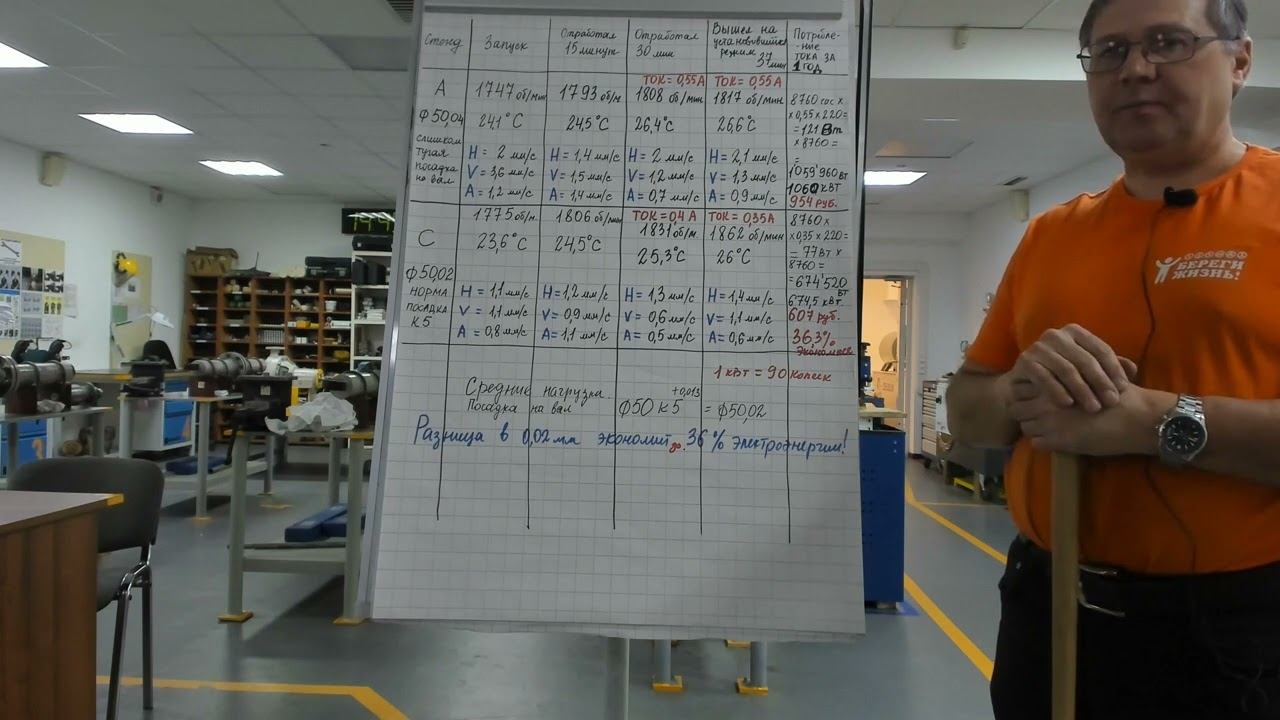 Стенд
Запуск
Отработал
15 минут
Отработал
30 мин
Вышел на
установившийся
режим 37 мин
Потребле-
-ние
тока за
1 год
А
Ф 50,04
слишком
тугая
посадка
на вал
1747 об/мин
24,1°С
Н = 2 мм/с
V = 3,6 мм/с
А = 1,2 мм/с
1793 об/м
24,5°С
Н = 1,4 мм/с
V = 1,5 мм/с
А = 1,4 мм/с
ТОК = 0,55А
1808 об/мин
26,4°С
Н = 2 мм/с
V = 1,2 мм/с
А = 0,7 мм/с
ТОК = 0.55А
1817 об/мин
26,6°С
Н = 2,1 мм/с
V = 1,3 мм/с
А = 0,9 мм/с
8760 час х
х 0,55 х 220=
= 121 Вт
х 8760 =
=
1'059'960 вт
1060 кВт
954 руб.
С
Ф 50,02
норма
посадка
К5
1775 об/м.
23,6°С
Н = 1,1 мм/с
V = 1,1 мм/с
А = 0,8 мм/с
1806 об/мин
24,5°С
Н = 1,2 мм/с
V = 0,9 мм/с
А = 1,1 мм/с
ТОК = 0,4 А
1831 об/м.
25,3°С
Н = 1,3 мм/с
V = 0,6 мм/с
А = 0,5 мм/с
ТОК = 0,35А
1862 об/мин
26°С
Н = 1,4 мм/с
V = 1,1 мм/с
А = 0,6 мм/с
8760 х
х 0,35 х 220=
= 77 Вт х
8760 =
= 674'520
вт
674,5 кВт.
607 руб.
36,3%
экономия
1 кВт = 90 копеек
Средние нагрузка.
Посадка на вал
Ф50 К5 +0,013 = Ф50,02
Разница в 0,02 мм экономит до 36 % электроэнергии!
БЕРЕГИ
ЖИЗНЬ!